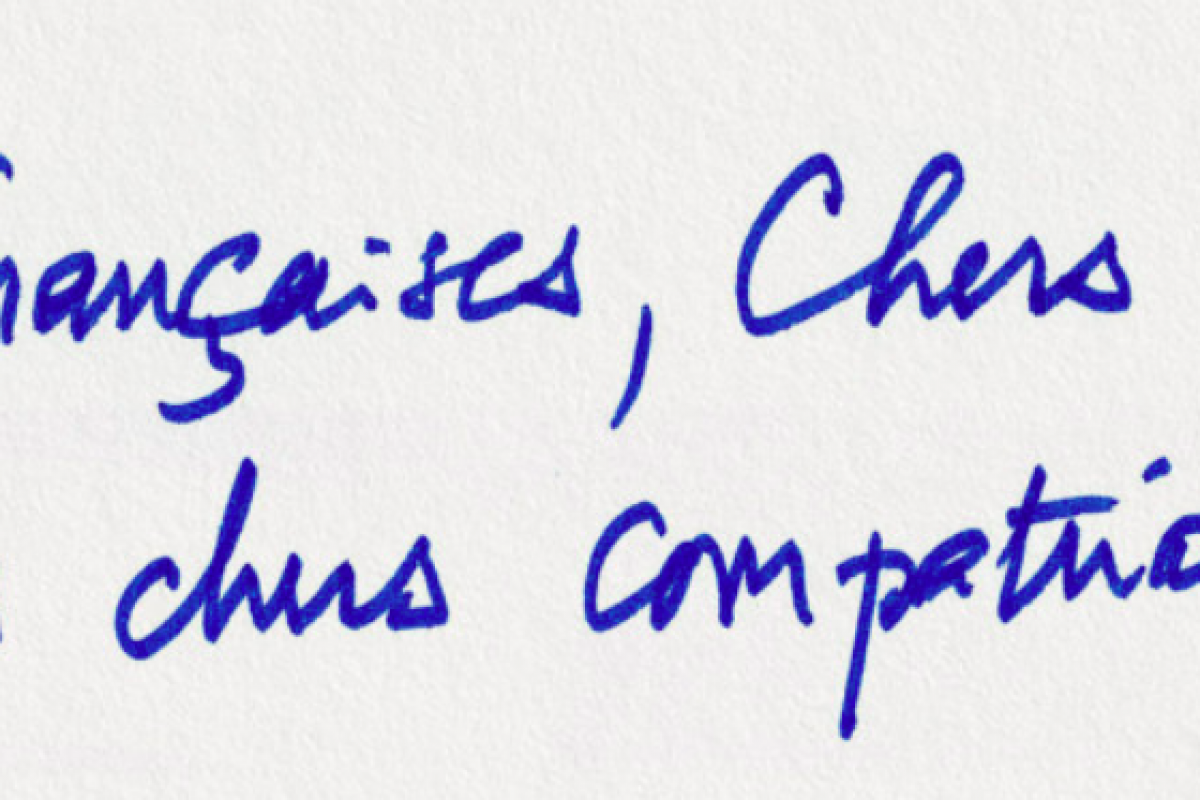 rançaises, Chers
chers compatrio